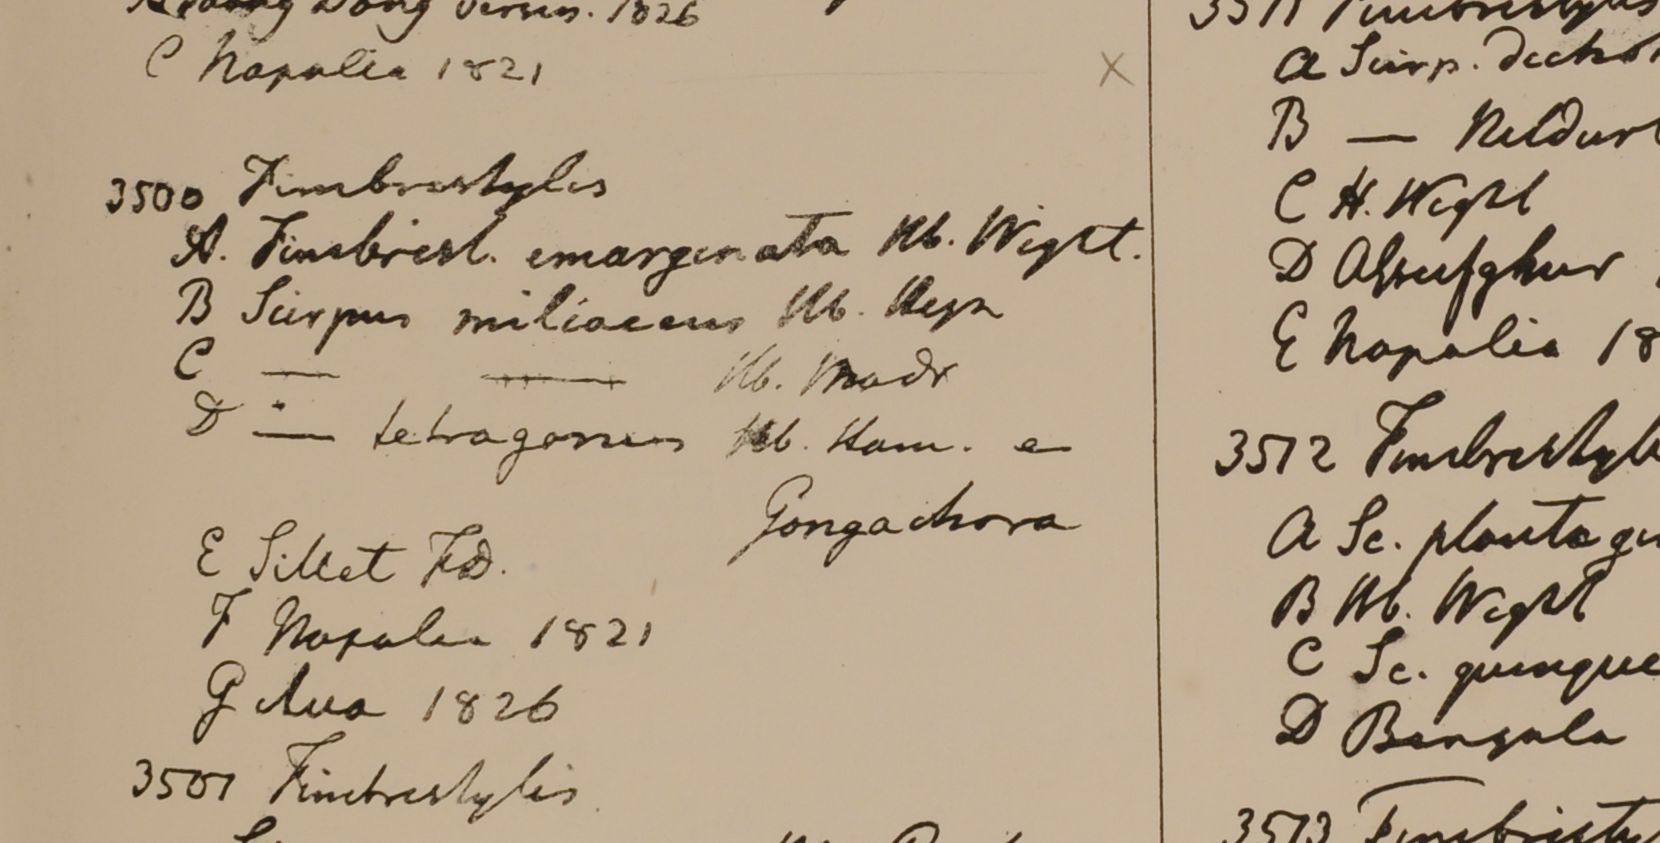 Dong versus. 1826
C Napalia 1821
3500 Fimbristylis
A. Fimbrist. emarginata Hb. Wight.
B Scirpus miliaceus Hb. Heyn
C — — Hb. Madr
D — tetragonus Hb. Ham. e
Gongachora
E Sillet F.D.
F Napalia 1821
G Ava 1826
3501 Fimbristylis
3511 Fimbristylis
A Scirp. dichot
B —
C H. Wight
D
E Napalia 18
3512 Fimbristyl
A Sc. plantagi
B Hb. Wight
C Sc. quinque
D Bengala
3513 Fimbristy